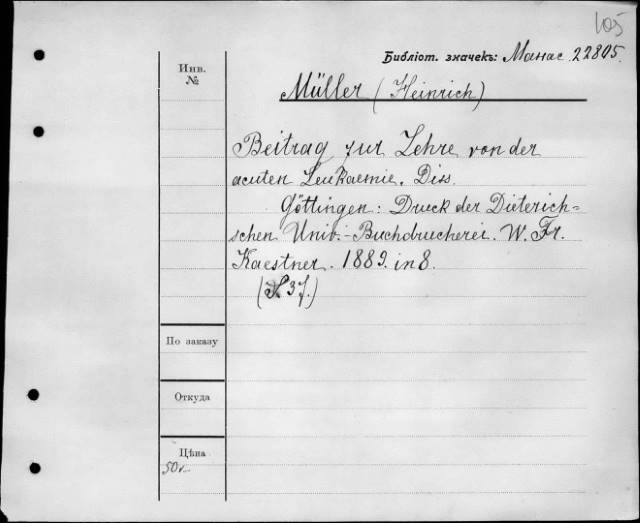 105
Библіот. значекъ: Манас 22805.
Инв. №
Müller (Heinrich)
Beitrag zur Lehre von der
acuten Leukaemie. Diss.
Göttingen: Druck der Dieterich=
schen Univ.-Buchdruckerei. W. Fr.
Kaestner. 1889. in 8.
(S. 37.)
По заказу
Откуда
Цѣна
50к.